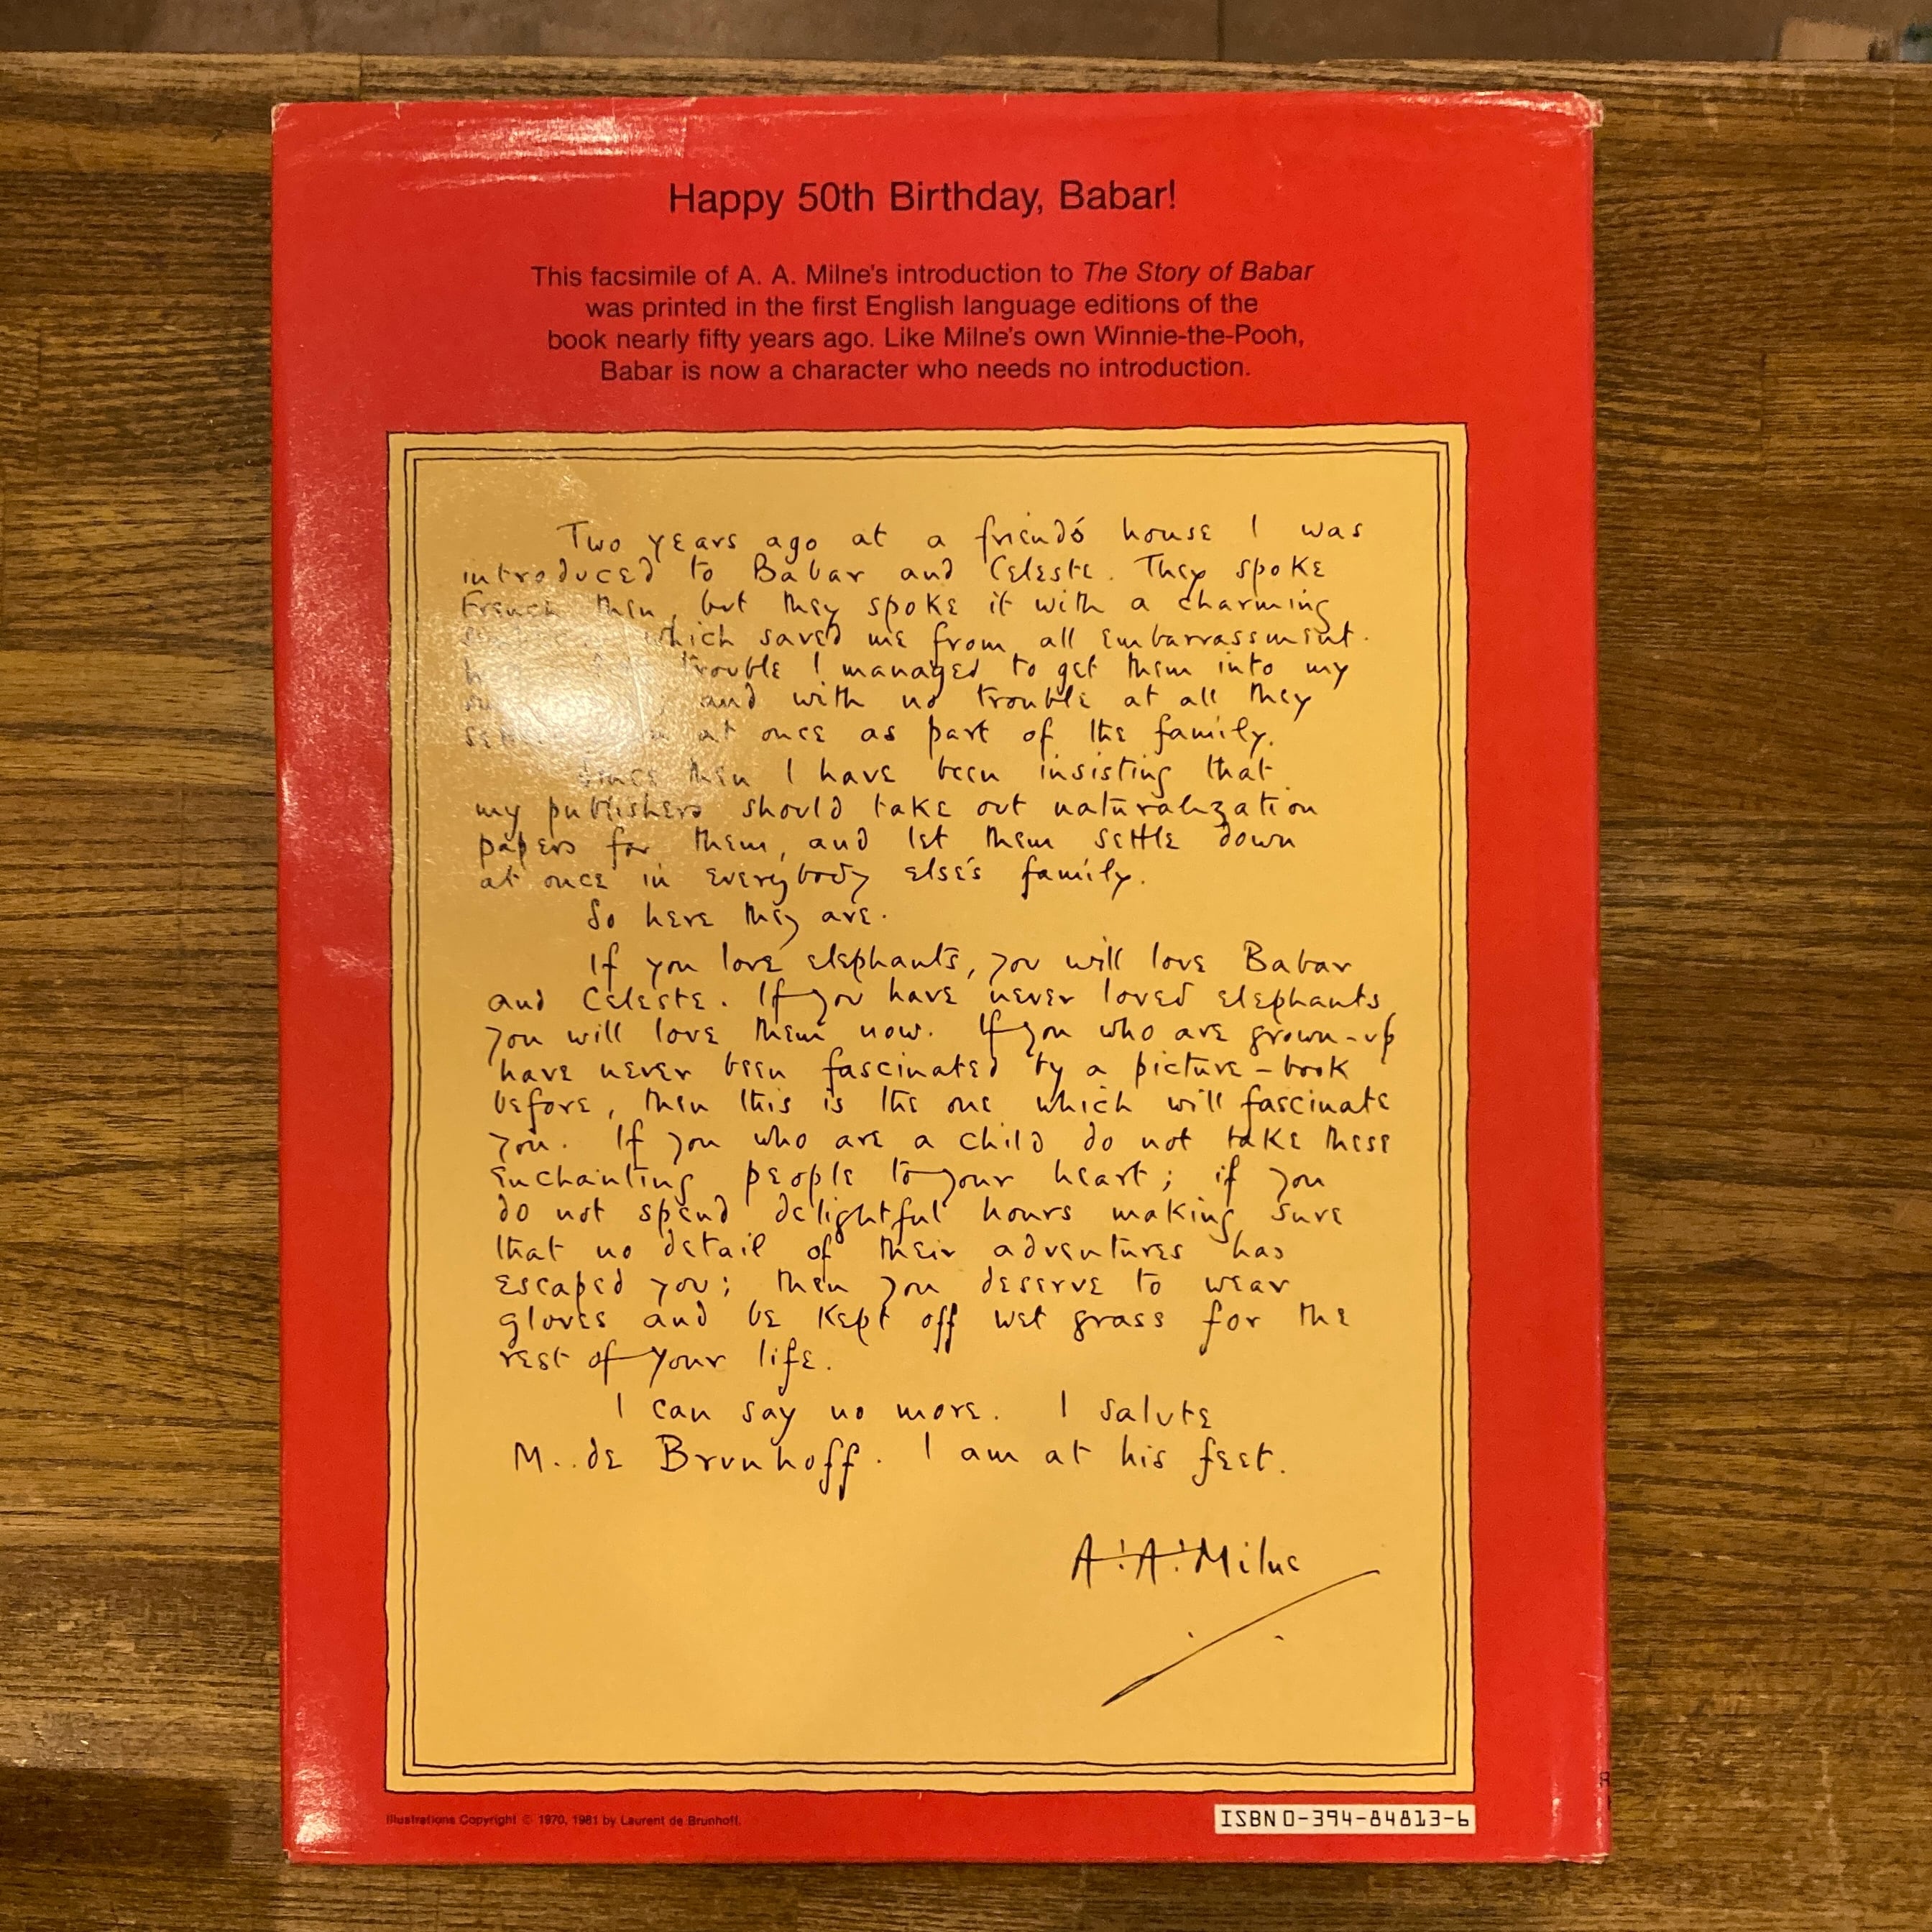 Happy 50th Birthday, Babar!
This facsimile of A. A. Milne's introduction to The Story of Babar
was printed in the first English language editions of the
book nearly fifty years ago. Like Milne's own Winnie-the-Pooh,
Babar is now a character who needs no introduction.
Two years ago at a friend's house I was
introduced to Babar and Celeste. They spoke
French then, but they spoke it with a charming
which saved me from all embarrassment.
trouble I managed to get them into my
and with no trouble at all they
at once as part of the family.
Since then I have been insisting that
my publishers should take out naturalization
papers for them, and let them settle down
at once in everybody else's family.
So here they are.
If you love elephants, you will love Babar
and Celeste. If you have never loved elephants
you will love them now. If you who are grown-up
have never been fascinated by a picture-book
before, then this is the one which will fascinate
you. If you who are a child do not take these
enchanting people to your heart; if you
do not spend delightful hours making sure
that no detail of their adventures has
escaped you; then you deserve to wear
gloves and be kept off wet grass for the
rest of your life.
I can say no more. I salute
M. de Brunhoff. I am at his feet.
A. A. Milne
Illustrations Copyright © 1970, 1981 by Laurent de Brunhoff.
ISBN 0-394-84813-6